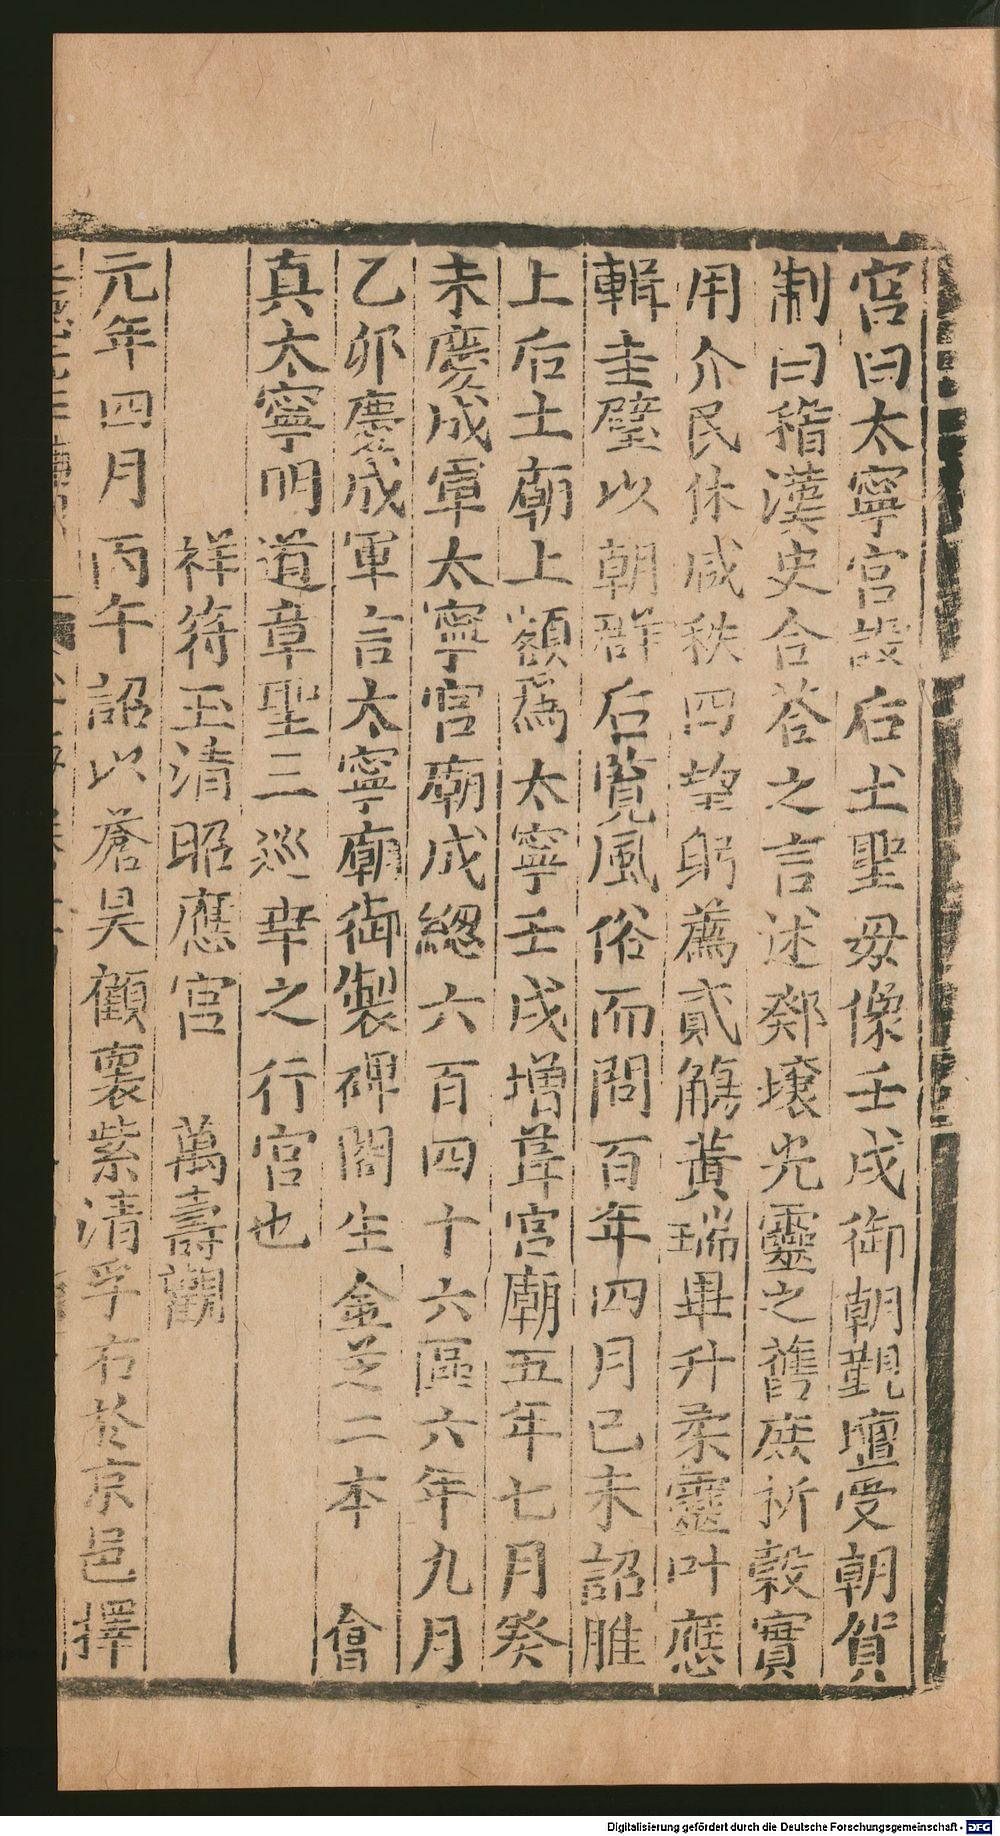 宮曰太寧宮設后土聖母像壬戌御朝覲壇受朝賀
制曰稽漢史合荅之言述鄈壌光靈之舊庶祈穀實
用介民休咸秩四望躬薦貳觴黃瑞畢升柔靈叶應
輯圭璧以朝群后覧風俗而問百年四月己未詔脽
上后土廟上額爲太寧壬戌增葺宮廟五年七月癸
未慶成軍太寧宮廟成緫六百四十六區六年九月
乙卯慶成軍言太寧廟御製碑閣生金芝二本 會
真太寧明道章聖三廵幸之行宮也
祥符玉清昭應宮 萬壽觀
元年四月丙午詔以蒼昊顧褱紫清孚右於京邑擇
Digitalisierung gefördert durch die Deutsche Forschungsgemeinschaft - DFG